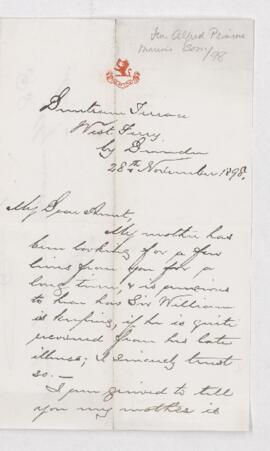 Alfred
Son/98
Terrace
West Ferry
by Dundee
28th November 1898.
My Dear Aunt,
My mother has
been looking for a few
lines from you for a
long time, & is anxious
to hear how Sir William
is keeping, if he is quite
recovered from his late
illness; I sincerely trust
so. —
I am grieved to tell
you my mother is